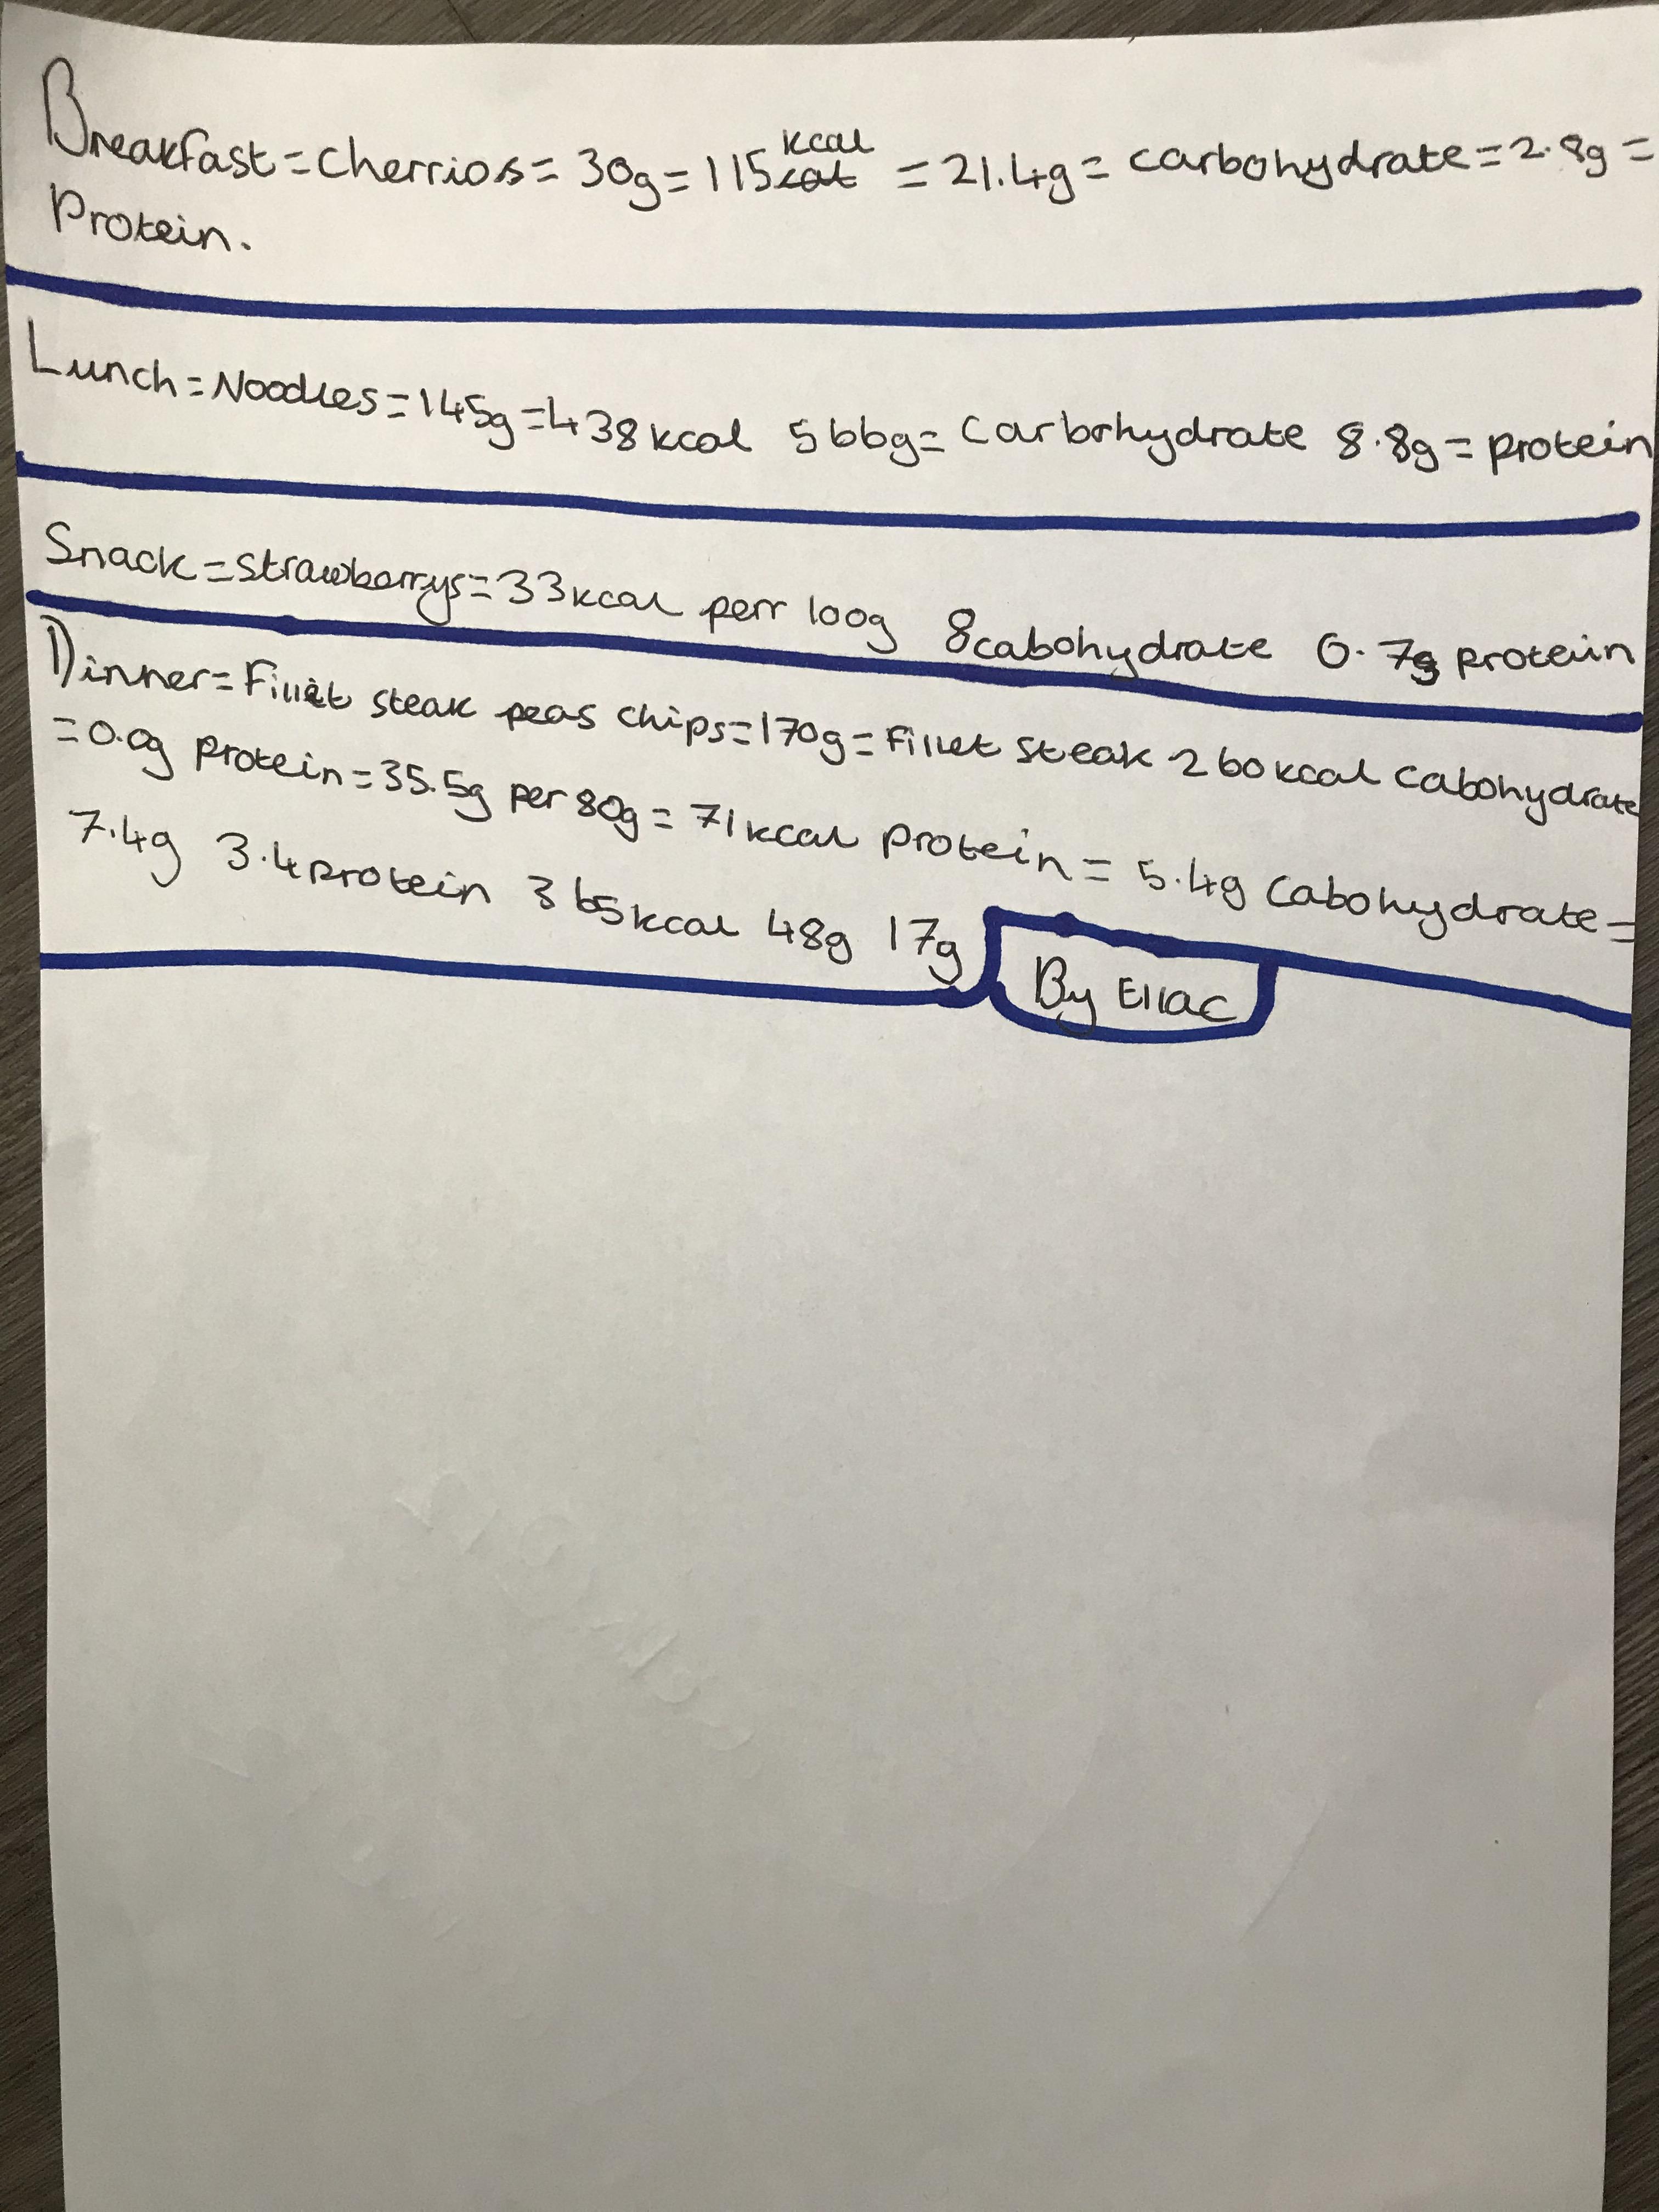 Breakfast = Cherrios = 30g = 115 kcal = 21.4g = carbohydrate = 2.8g =
Protein.
Lunch = Noodles = 145g = 438 kcal 566g = Carbohydrate 8.8g = protein
Snack = Strawberrys = 33 kcal perr 100g 8 cabohydrate 0.7g protein
Dinner = Fillet steak peas chips = 170g = Fillet steak 260 kcal cabohydrate
= 0.0g protein = 35.5g per 80g = 71 kcal Protein = 5.4g cabohydrate =
7.4g 3.4 protein 365 kcal 48g 17g
By EllaC